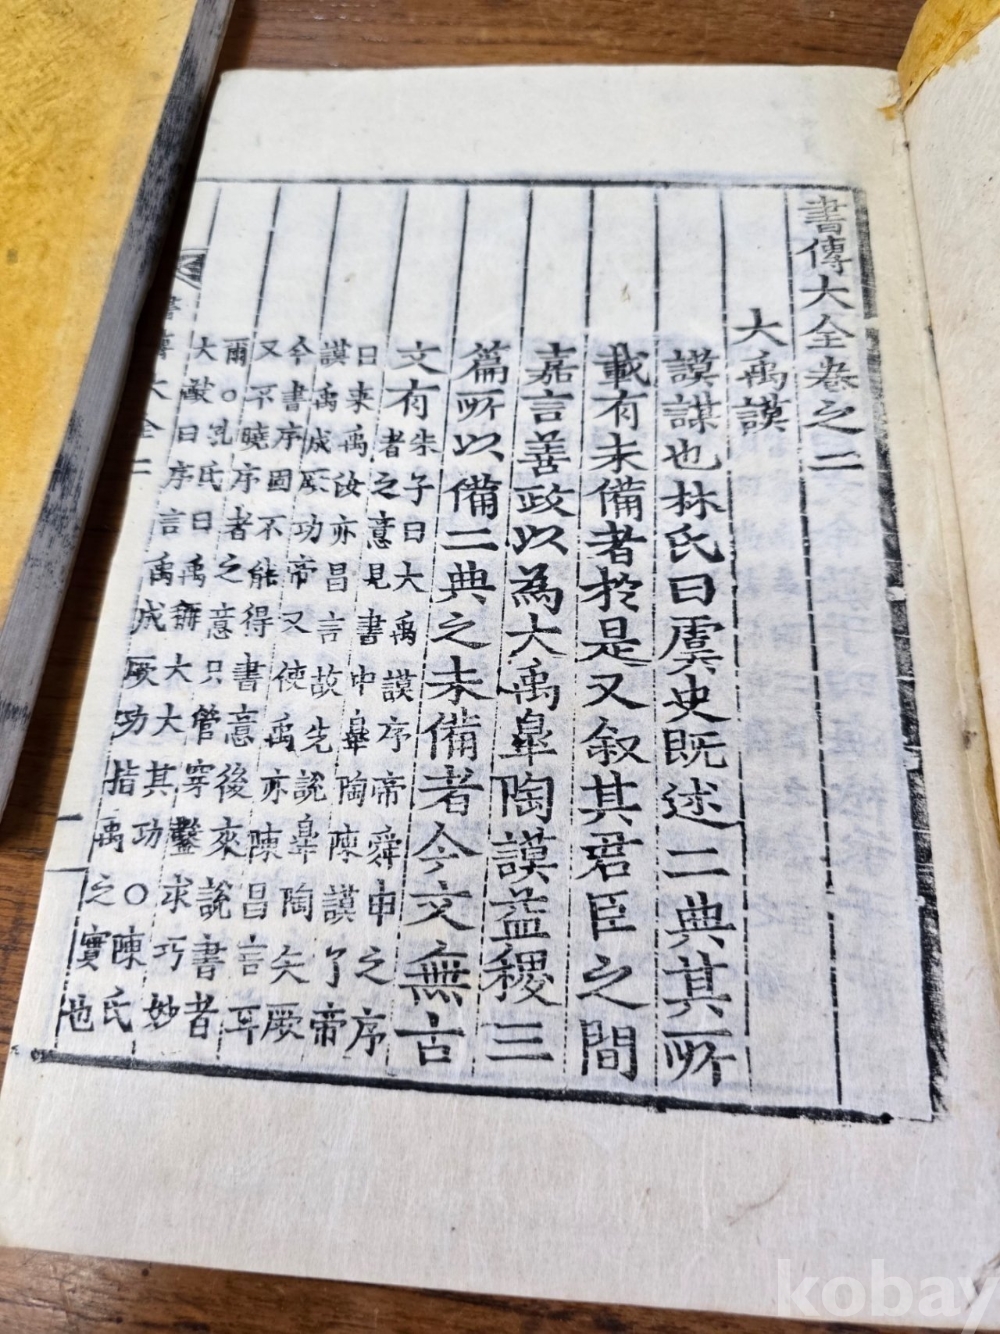 書傳大全卷之二
大禹謨
謨謀也林氏曰虞史既述二典其所
載有未備者於是又叙其君臣之間
嘉言善政以為大禹皐陶謨益稷三
篇所以備二典之未備者今文無古
文有朱子曰大禹謨序帝舜申之序
者之意見書中皐陶陳謨了帝
曰来禹汝亦昌言故先說皐陶矢厥
謨禹成厥功帝又使禹亦陳昌言耳
今書序固不能得書意後來說書者
又不曉序者之意只管穿鑿求巧妙
爾○孔氏曰禹稱大大其功○陳氏
大猷曰序言禹成厥功指禹之實也
書傳大全二
kobay